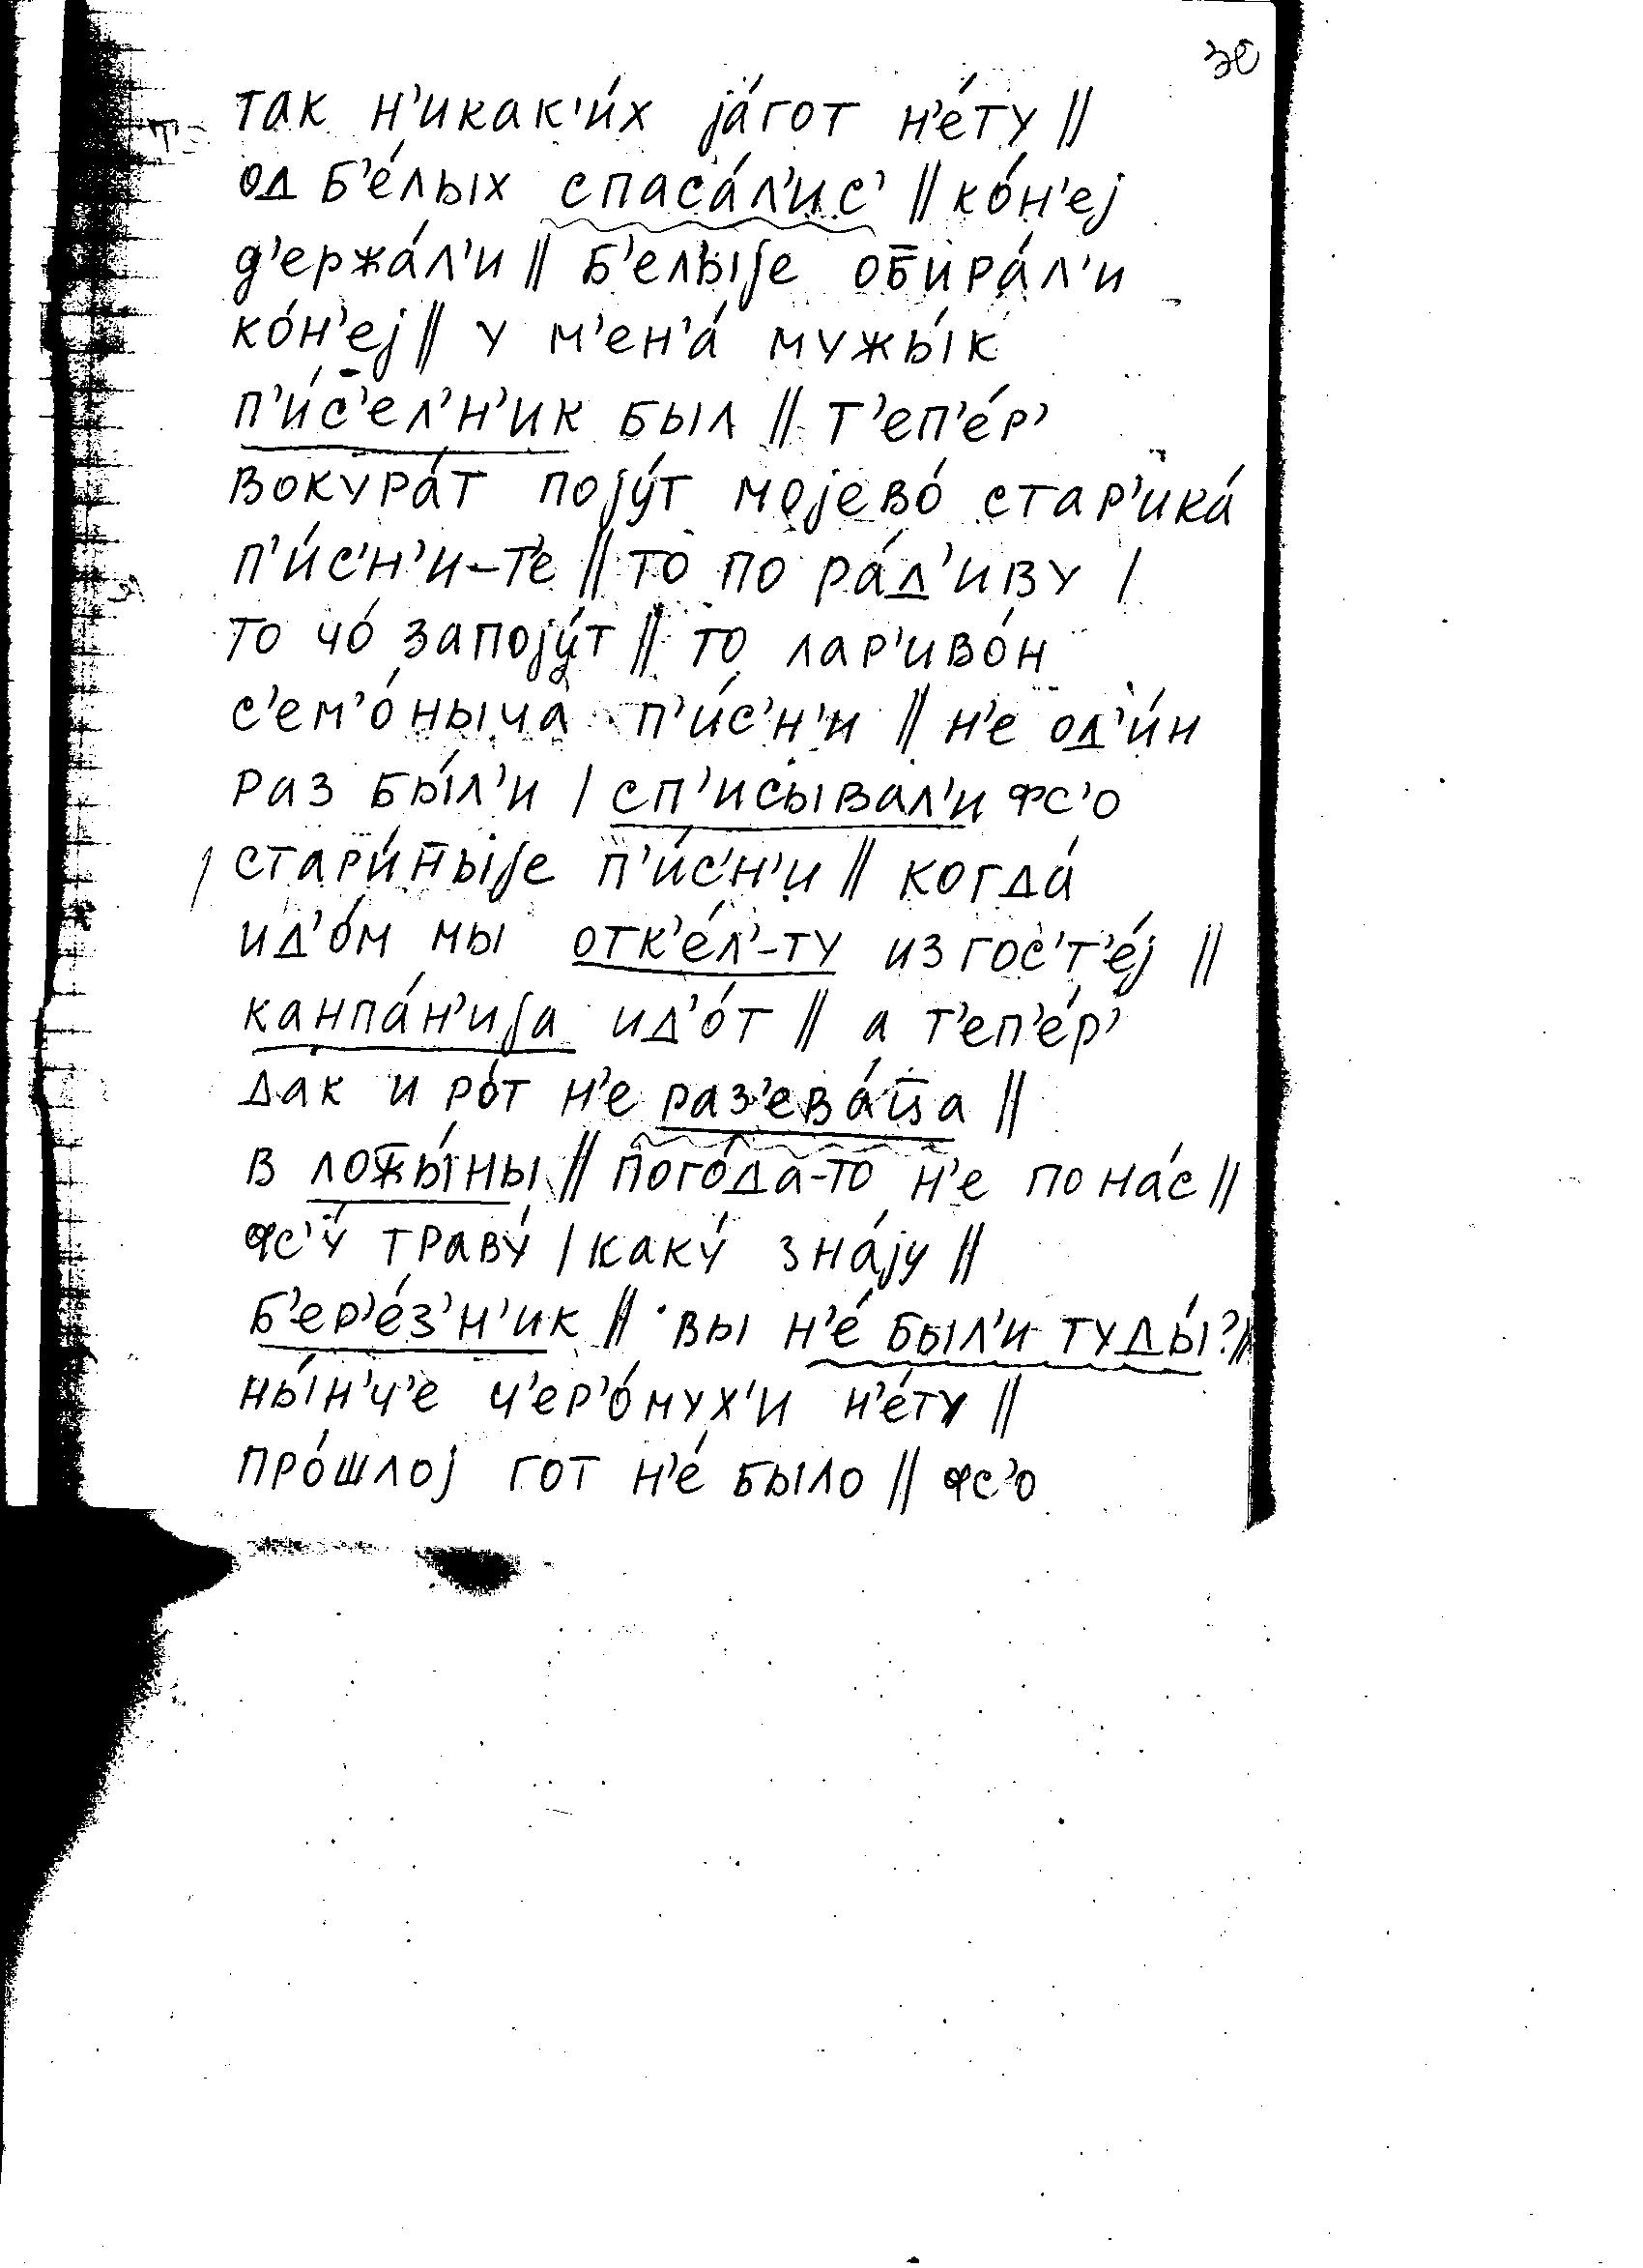 30
так н'икак'и́х ја́гот н'е́ту ||
од б'е́лых спаса́л'ис' || ко́н'еј
д'ержа́л'и || б'елыје обира́л'и
ко́н'еј || у м'ен'а́ мужы́к
п'и́с'ел'н'ик был || т'еп'е́р'
вокура́т појýт мојево́ стар'ика́
п'и́с'н'и-т'е || то по ра́д'иву |
то чо́ запоју́т || то лар'иво́н
с'ем'о́ныча п'и́с'н'и || н'е од'и́н
раз бы́л'и | сп'исывал'и фс'о
стари́н̄ыје п'и́с'н'и || когда́
ид'о́м мы отк'е́л'-ту из гос'т'е́ј ||
канпа́н'ија ид'о́т || а т'еп'е́р'
дак и ро́т н'е раз'ева́ц̄а ||
в ложы́ны || пого́да-то н'е по на́с ||
фс'у́ траву́ | каку́ зна́ју ||
б'ер'е́з'н'ик || вы н'е́ был'и туды́? ||
ны́н'ч'е ч'ер'о́мух'и н'е́ту ||
про́шлој гот н'е́ было || фс'о